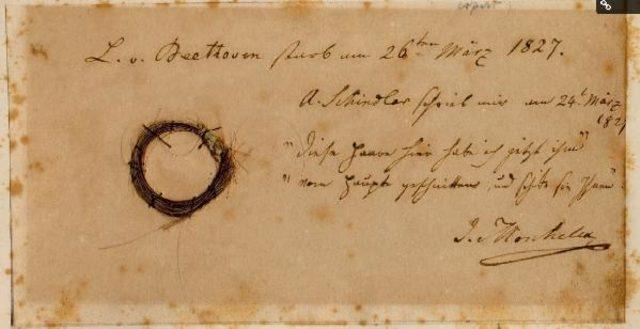 L. v. Beethoven starb am 26ten März 1827.
A. Schindler schrieb mir am 24t März
1827
"diese Haare hier habe ich jetzt ihm
" vom Haupte geschnitten, und schicke sie Ihnen."
I. Moscheles